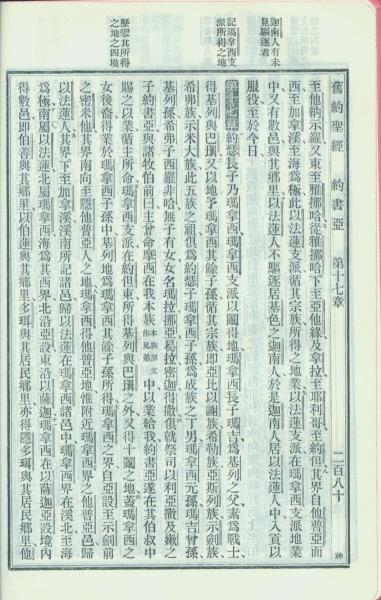 舊約聖經 約書亞 第十七章 二百八十
迦南人有未
見驅逐者
記瑪拿西支
派所得之地
其所得
之地之四境
至他納示羅又東至雅挪哈從雅挪哈下至亞他綠及拿拉至耶利哥至約但其界自他普亞而
西至加拿溪至海爲極此以法蓮支派循其宗族所得之地業以法蓮支派在瑪拿西支派地業
中又有數邑與其鄉里以法蓮人不驅逐居基色之迦南人於是迦南人居以法蓮人中入貢以
服役至於今日
第十七章約瑟長子乃瑪拿西瑪拿西支派以鬮得地瑪拿西長子瑪吉爲基列之父素爲戰士
得基列與巴珊又以地予瑪拿西其餘子孫循其宗族即亞比以謝族希勒族亞斯列族示劍族
希弗族示米大族此五族之祖俱爲約瑟子瑪拿西子孫爲成族之丁男瑪拿西元孫瑪吉曾孫
基列孫希弗子西羅非哈無子有女女名瑪拉挪亞曷拉密迦得撒俱就祭司以利亞撒及嫩之
子約書亞與諸牧伯前曰主曾命摩西在我本族 中以業給我約書亞遂在其伯叔中
賜之以業循主所命瑪拿西支派在約但東所得基列與巴珊之外又得十鬮之地蓋瑪拿西之
女後裔得業於瑪拿西子孫中基列地爲瑪拿西其餘子孫所得瑪拿西之界自亞設至示劍前
之密米他其界南向至隱他普亞人之地瑪拿西得他普亞地惟附近瑪拿西界之他普亞邑歸
以法蓮人其界下至加拿溪溪南所記諸邑歸以法蓮在瑪拿西諸邑中瑪拿西界在溪北至海
爲極南屬以法蓮北屬瑪拿西海爲其西界北沿亞設東沿以薩迦瑪拿西在以薩迦亞設境內
得數邑即伯善與其鄉里以伯蓮與其鄉里多珥與其居民鄉里亦得隱多珥與其居民鄉里他